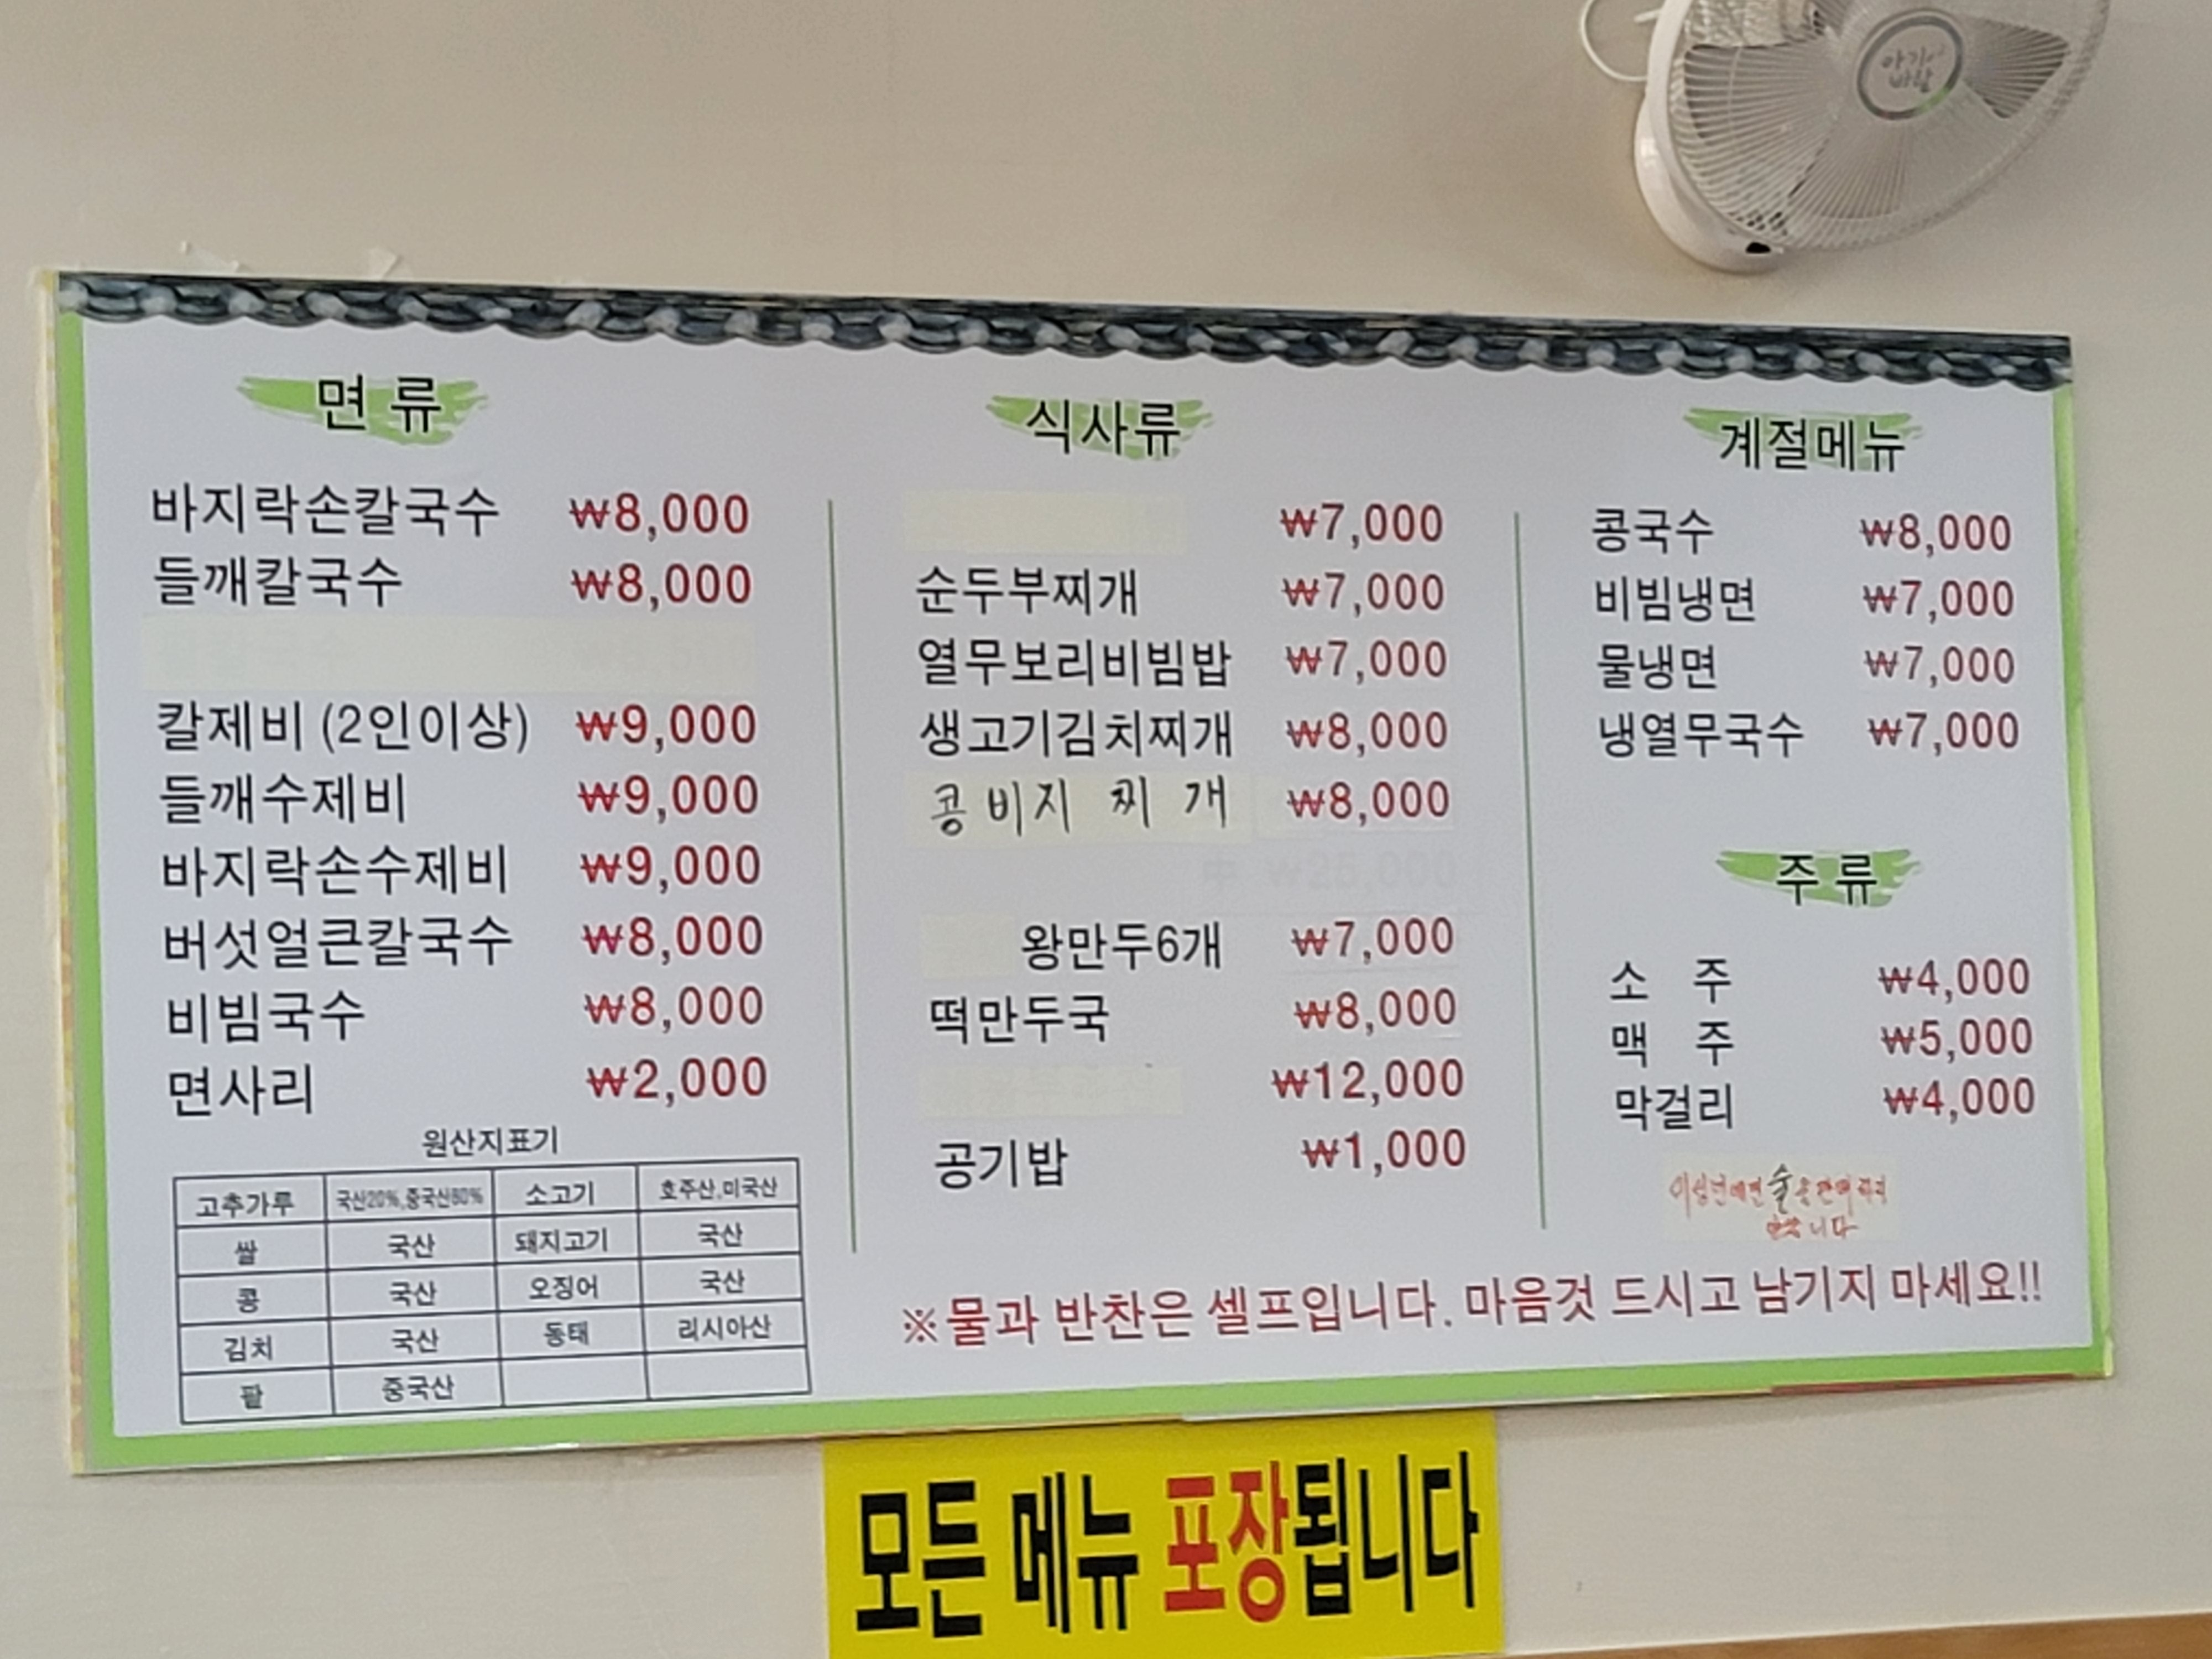 아기바람
면 류
바지락손칼국수 ₩8,000
들깨칼국수 ₩8,000
칼제비 (2인이상) ₩9,000
들깨수제비 ₩9,000
바지락손수제비 ₩9,000
버섯얼큰칼국수 ₩8,000
비빔국수 ₩8,000
면사리 ₩2,000
원산지표기
고추가루 국산20%,중국산80% 소고기 호주산,미국산
쌀 국산 돼지고기 국산
콩 국산 오징어 국산
김치 국산 동태 러시아산
팥 중국산
식사류
₩7,000
순두부찌개 ₩7,000
열무보리비빔밥 ₩7,000
생고기김치찌개 ₩8,000
콩비지 찌 개 ₩8,000
中 ₩25,000
왕만두6개 ₩7,000
떡만두국 ₩8,000
₩12,000
공기밥 ₩1,000
계절메뉴
콩국수 ₩8,000
비빔냉면 ₩7,000
물냉면 ₩7,000
냉열무국수 ₩7,000
주 류
소 주 ₩4,000
맥 주 ₩5,000
막걸리 ₩4,000
술을 판매하지
않습니다
※물과 반찬은 셀프입니다. 마음것 드시고 남기지 마세요!!
모든 메뉴 포장됩니다